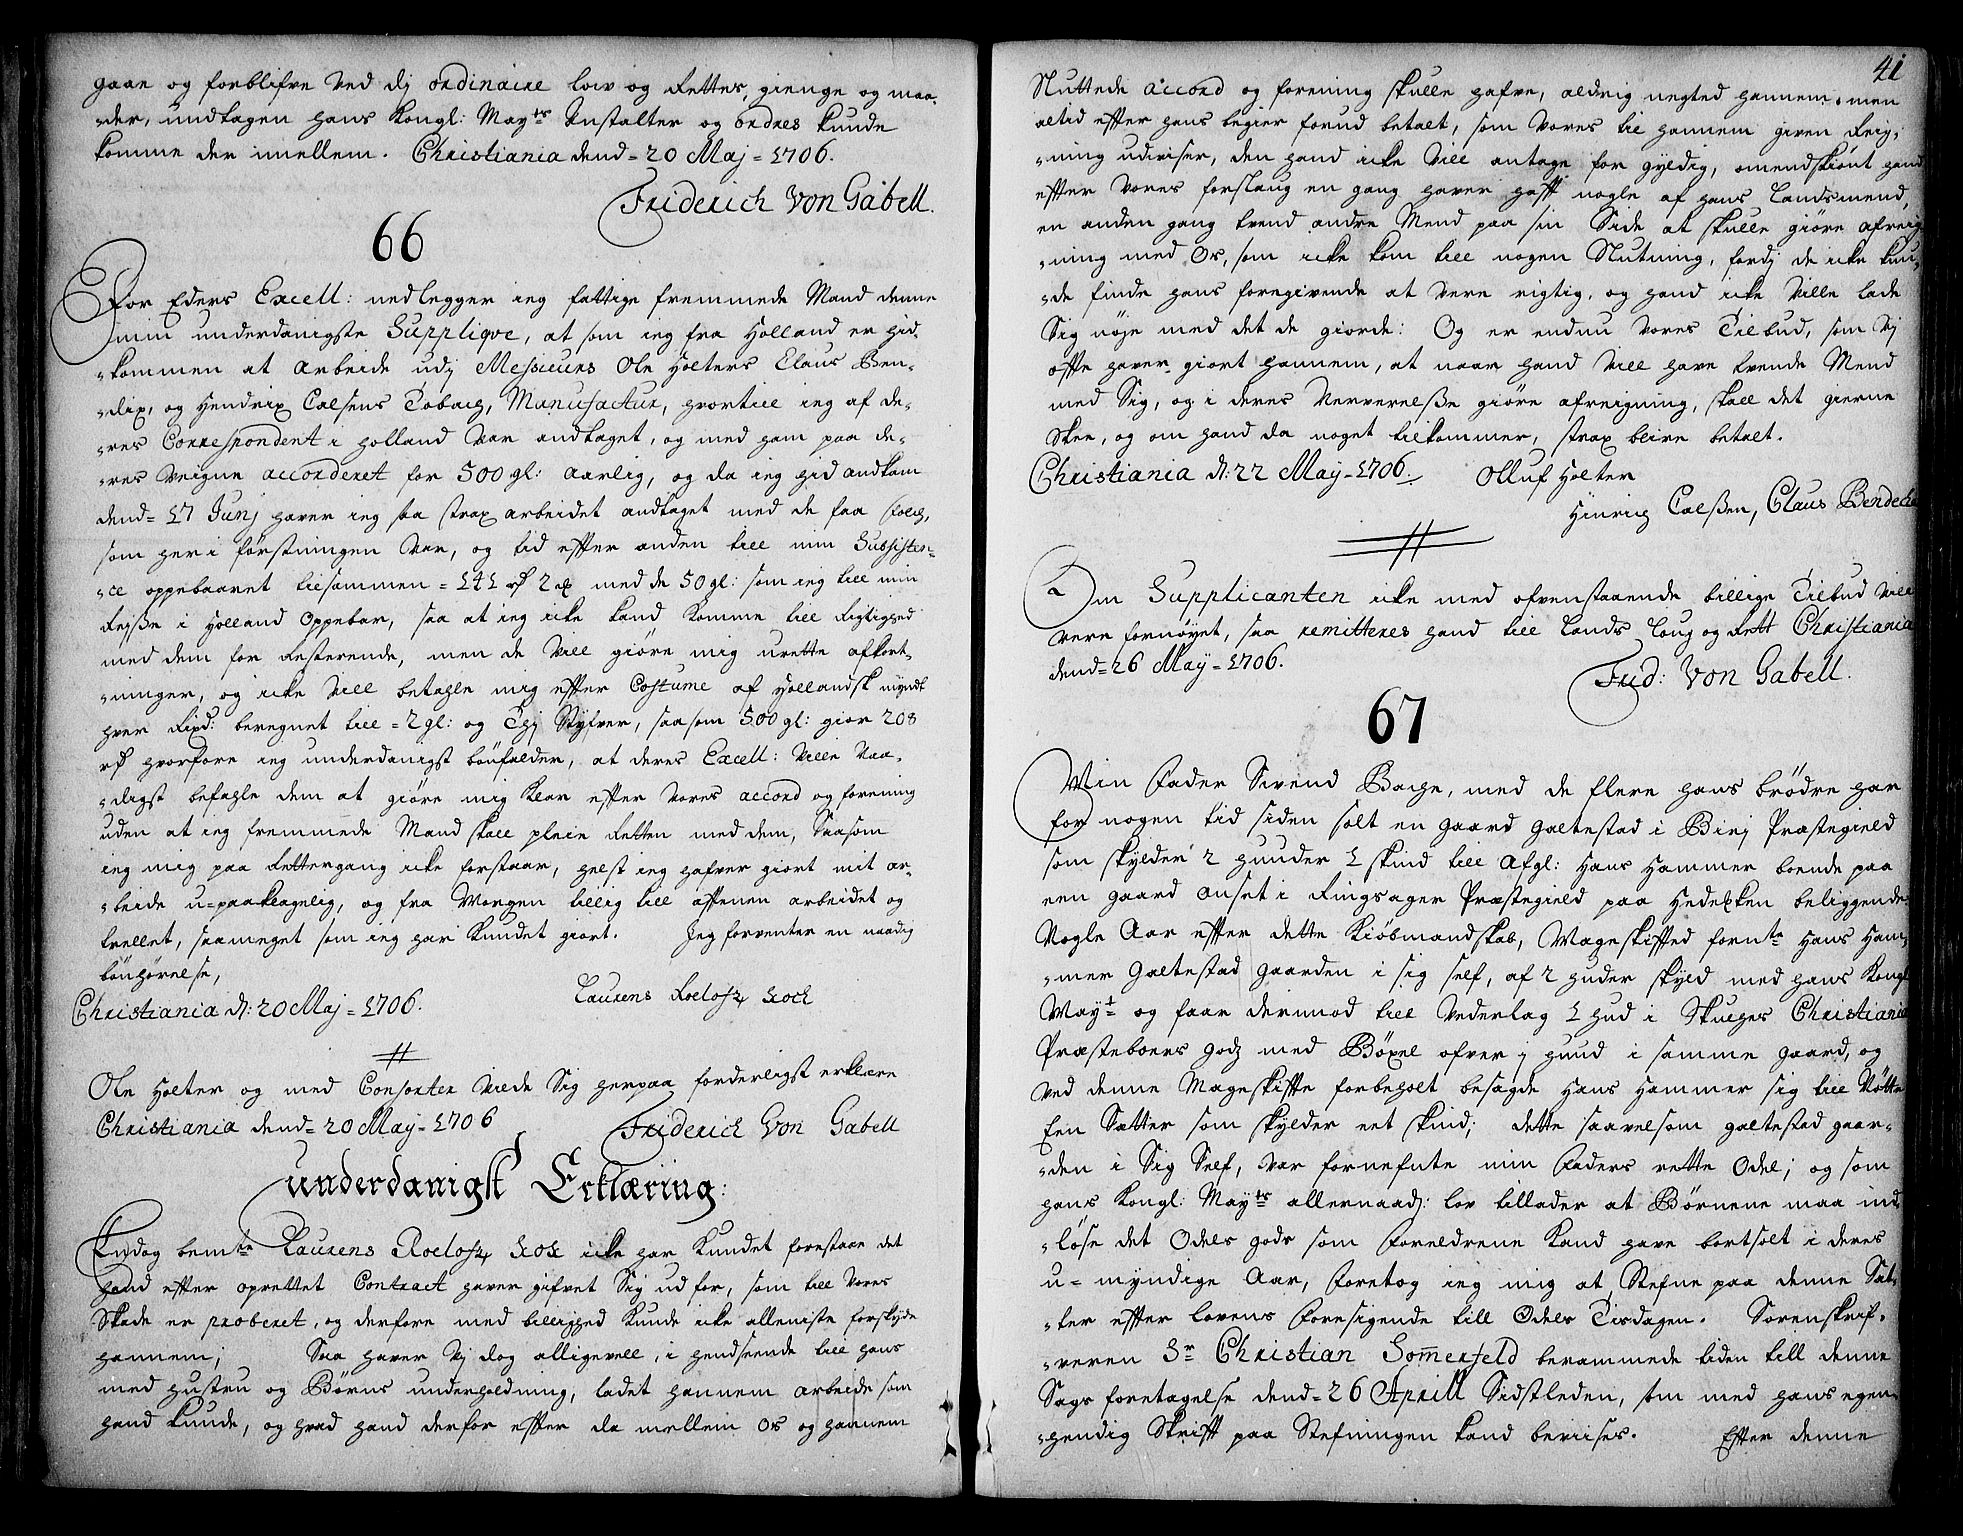 gaae og forblifve ved dj ordinaire low og Retter, gienge og maa-
-der, undtagen hans Kongl: Mayts Anstalter og ordres kunde
komme der imellem. Christiania dend= 20 Maj= 1706.
Friderich von Gabell.
66
For Eders Excell: nedlegger ieg fattige fremmede Mand denne
min underdanigste Supplique, at som ieg fra Holland er hid-
-kommen at arbeide udj Messieurs Ole Holters Claus Ben-
-dix, og Hendrix Calsens Tobach, Manufactur, hvortill ieg af de-
-res Correspondent i Holland var andtaget, og med ham paa de-
-res Veigne accorderet for 500 gl: aarlig, og da ieg hid andkom
dend= 17 Junj haver ieg saa strax arbeidet andtaget med de faa Folch,
som her i førstningen var, og tid efter anden till min Subsisten-
-ce oppebaaret tilsammen = 141 rd 2 ort med de 50 gl: som ieg till min
Rejse i Holland oppebar, saa at ieg icke kand komme till Rigtighed
med dem for Resterende, men de vill giöre mig urette afkort-
-ninger, og icke vill betahle mig efter Costume af Hollandsk myndt
hver Rixd: beregnet till = 2 gl: og Thj Styfver, saasom 500 gl: giør 208
rd hvorfore ieg underdanigst bönfalder, at deres Excell: Ville Naa-
-digst befahle dem at giöre mig klar efter vores accord og forening
uden at ieg fremmede Mand skall pleie Retten med dem, Saasom
ieg mig paa Rettergang icke forstaar, helst ieg hafver giort mit ar-
-beide u=paaklagelig, og fra Morgen tillig till aftenen arbeidet og
trellet, saameget som ieg har kundet giort. Jeg forventer en naadig
bönhörelse,
Christiania d: 20 Maj= 1706.
Laurens Roelofz Kock
Ole Holter og med Consorter vilde Sig herpaa forderligst erklære
Christiania dend= 20 May= 1706
Friderich Von Gabell
underdanigst Erklæring:
Endog bemte Laurens Roelofz Kok icke har kundet forestaae det
hand efter oprettet Contract haver gifvet Sig ud for, som till vores
Skade er proberet, og derfore med billighed kunde icke alleniste forskyde
hannem; Saa haver vj dog alligevell, i hendseende till hans
med Hustru og Børns underholdning, ladet hannem arbeide som
hand kunde, og hvad hand derfor efter da mellem os og hannem
41
Sluttede accord og forening skulle hafve, aldrig negted hannem, men
altid efter hans begier forud betalt, som vores til hannem given Reig-
-ning udviser, den hand icke vill antage for gyldig, omendskiönt hand
efter vores forslaug en gang haver haft nogle af hans Landsmend,
en anden gang tvend andre Mend paa sin Side at skulle giöre afreig-
-ning med Os, som icke kom till nogen Slutning, fordj de icke kun-
-de finde hans foregivende at vere rigtig, og hand icke ville lade
Sig nöje med det de giorde: Og er endnu vores Tilbud, som vj
ofte haver giort hannem, at naar hand vill have tvende Mend
med Sig, og i deres Nerverelsse giöre afreigning, skall det gierne
Skee, og om hand da noget tilkommer, strax blive betalt.
Christiania d: 22 May= 1706.
Olluf Holter
Hinrich Calssen, Claus Bendeke
Om Supplicanten icke med ofvenstaaende billige Tilbud vill
vere fornøyet, saa remitteres hand till Lands Loug og Rett Christiania
dend= 26 May= 1706.
Frid: Von Gabell.
67
Min Fader Sivend Bache, med de flere hans brödre har
for nogen tid siden solt en gaard Galtestad i Birj Præstegield
som skylder 2 huuder 1 skind till afgl: Hans Hammer boende paa
een gaard onset i Ringsager Præstegield paa Hedexken beliggende.
Nogle Aar efter dette Kiöbmandskab, Mageskifted fornte Hans Ham-
-mer Galtestad gaarden i sig self, af 2 huder skyld med hans Kongl
Mayt og faar derimod till Vederlag 1 hud i Skulhus Christiania
Præsteboers godz med Böxel ofver j huud i samme gaard, og
ved denne Mageskifte forbeholt besagde Hans Hammer sig till Nötte
Een Sætter som skylder eet skind; dette saavelsom galtestad gaar-
-den i Sig Self, var fornefnte min Faders rette Odel; og som
hans Kongl: Mayts allernaad: lov tillader at Børnene maa ind-
-löse det Odels gods som Foreldrene Kand have bortsolt i deres
u= myndige Aar, Foretog ieg mig at Stefne paa denne Sæt-
-ter efter lovens Foresigende till Odels Tirsdagen. Sorenskrif-
-veren Sr Christian Somerfeld berammede tiden till denne
Sags foretagelse dend= 26 Aprill Sidstleden, som med hans egen-
-hendig Skrift paa Stefningen kand beviises. Efter denne